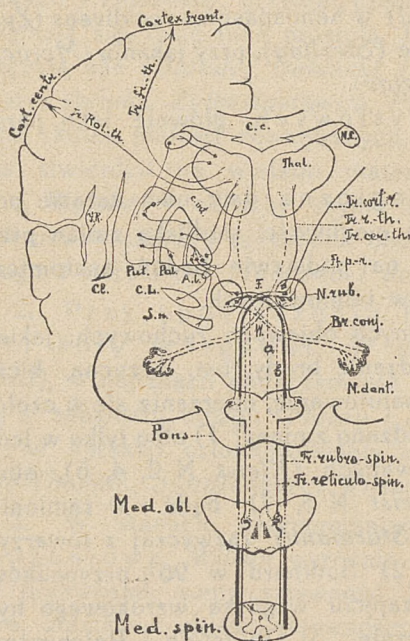 Cortex front.
Cort. centr.
Tr. fr.-th.
Tr. Rol.-th.
C.c.
N.C.
Thal.
c. int.
Tr. cort.-r.
Tr. r.-th.
Tr. cer.-th.
J.R.
Cl.
Put.
Pal.
A.l.
C.L.
S.n.
F.
N. rub.
W.
Br. conj.
a
b
N. dent.
Pons
Tr. rubro-spin.
Tr. reticulo-spin.
Med. obl.
Med. spin.